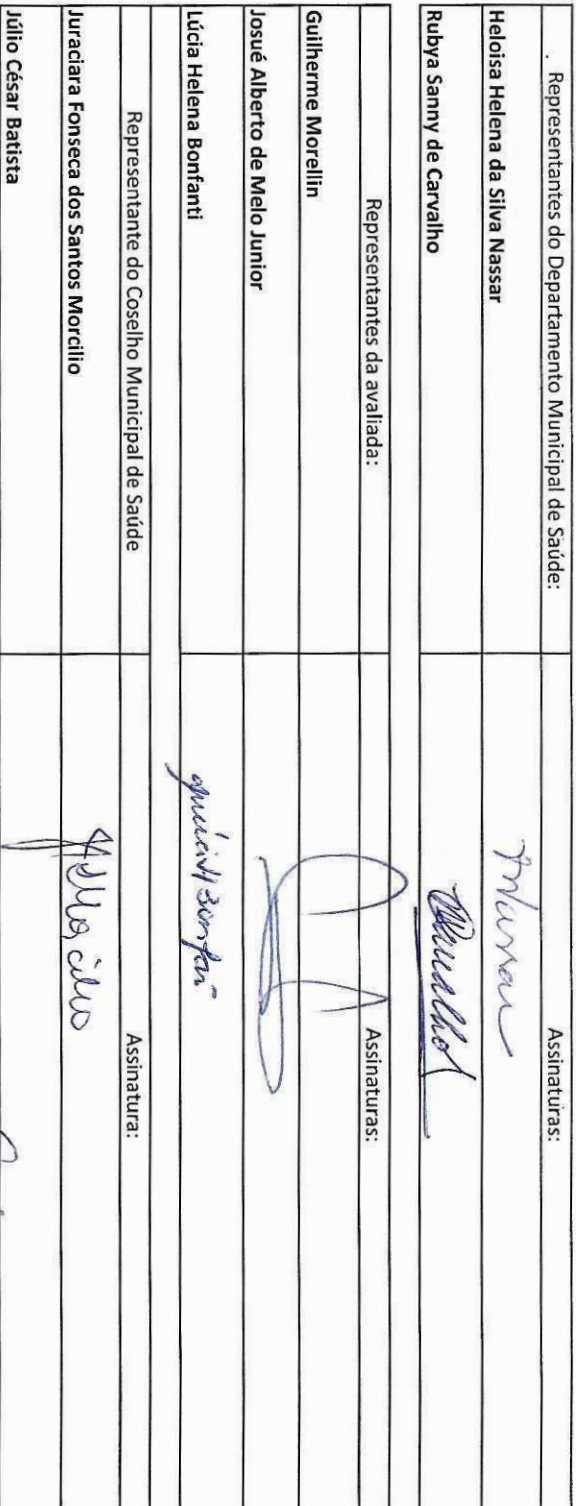 . Representantes do Departamento Municipal de Saúde: Assinaturas:
Heloisa Helena da Silva Nassar
Rubya Sanny de Carvalho
Representantes da avaliada: Assinaturas:
Guilherme Morellin
Josué Alberto de Melo Junior
Lúcia Helena Bonfanti
Representante do Coselho Municipal de Saúde Assinatura:
Juraciara Fonseca dos Santos Morcilio
Júlio César Batista